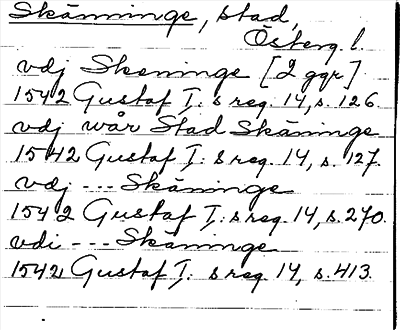 Skänninge, stad,
Österg. l.
vdj Skeninge [2 ggr]
1542 Gustaf I:s reg. 14, s. 126.
vdj wår Stad Skäninge
1542 Gustaf I:s reg. 14, s. 127.
vdj --- Skäninge
1542 Gustaf I:s reg. 14, s. 270.
vdi --- Skäninge
1542 Gustaf I:s reg. 14, s. 413.